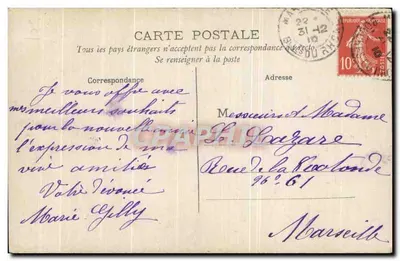 CARTE POSTALE
Tous les pays étrangers n'acceptent pas la correspondance au
Se renseigner à la poste
Correspondance
Adresse
Je vous offre avec
mes meilleurs souhaits
pour la nouvelle
l'expression de ma
vive amitié
Votre dévouée
Marie Gilly
Messieurs et Madame
St Lazare
Rue de la Rotonde
No 61
Marseille
31-12
10